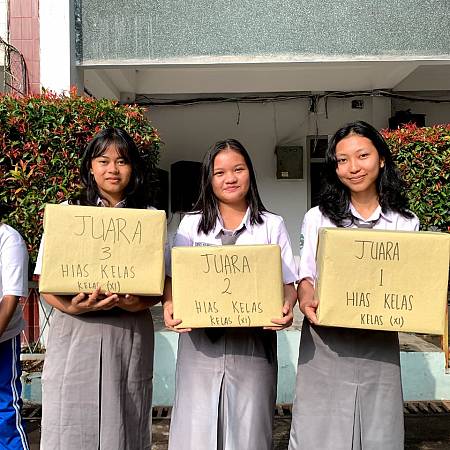 JUARA
3
HIAS KELAS
KELAS (XI)
JUARA
2
HIAS KELAS
KELAS (XI)
JUARA
1
HIAS KELAS
KELAS (XI)